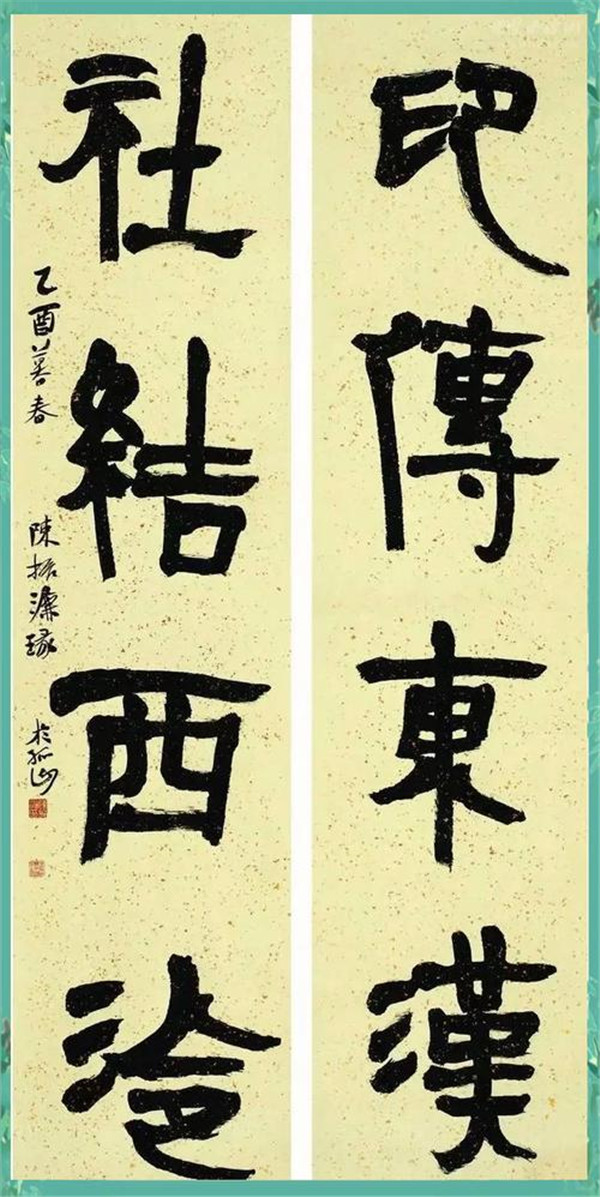 印傳東漢
社結西泠
乙酉暮春 陳振濂 於孤山